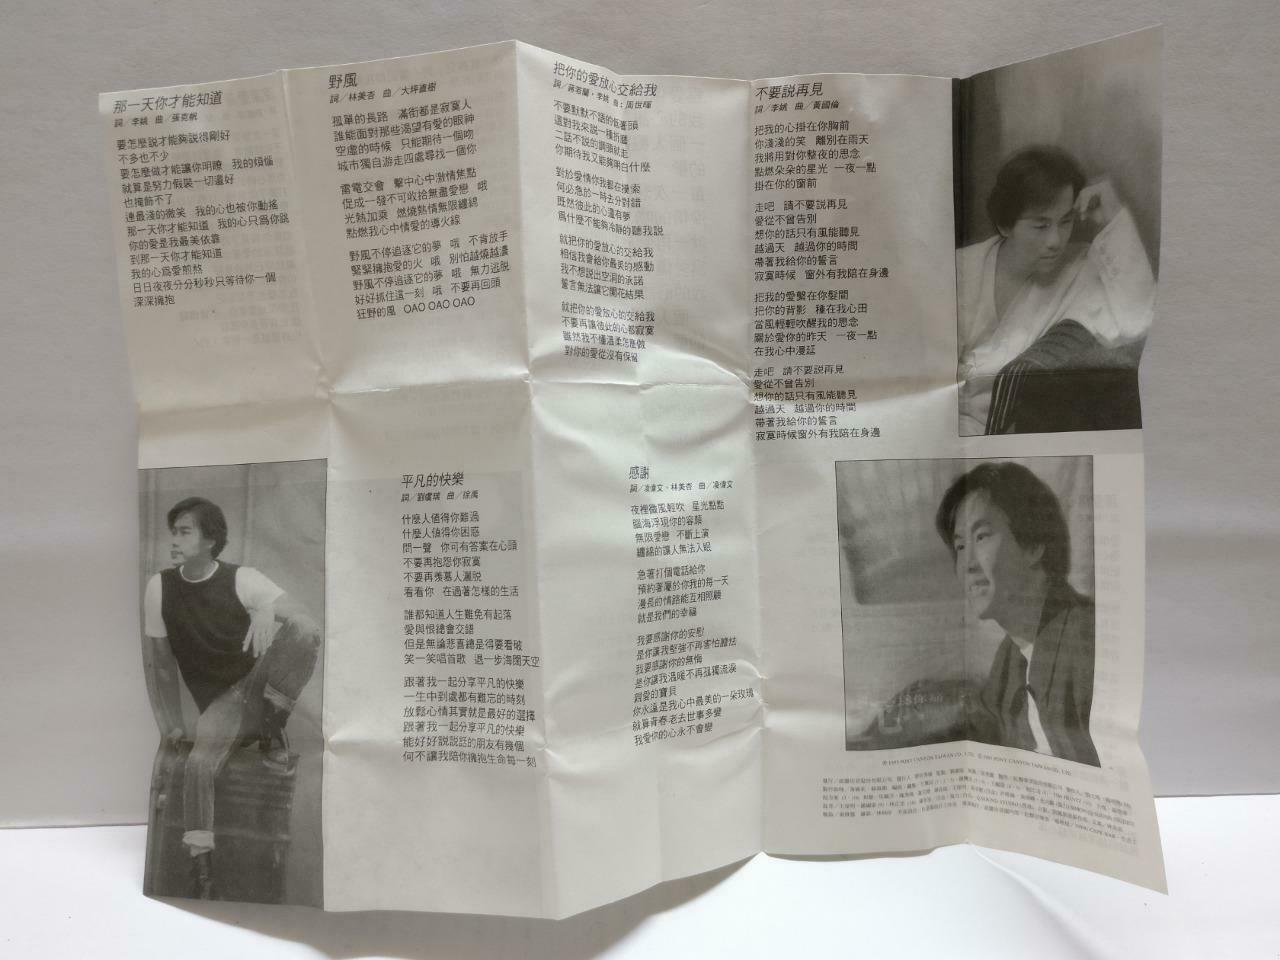 那一天你才能知道
詞／李姚　曲／張克帆
要怎麼說才能夠說得剛好
不多也不少
要怎麼做才能讓你明瞭　我的煩惱
就算是努力假裝一切還好
也掩飾不了
連最淺的微笑　我的心也被你動搖
那一天你才能知道　我的心只爲你跳
你的愛是我最美依靠
到那一天你才能知道
我的心爲愛煎熬
日日夜夜分分秒秒只等待你一個
深深擁抱
野風
詞／林美杏　曲／大坪直樹
孤單的長路　滿街都是寂寞人
誰能面對那些渴望有愛的眼神
空虛的時候　只能期待一個吻
城市獨自游走四處尋找一個你
雷電交會　擊中心中激情焦點
促成一發不可收拾無盡愛戀　哦
光熱加乘　燃燒熱情無限纏綿
點燃我心中情愛的導火線
野風不停追逐它的夢　哦　不肯放手
緊緊擁抱愛的火　哦　別怕越燒越濃
野風不停追逐它的夢　哦　無力逃脱
好好抓住這一刻　哦　不要再回頭
狂野的風　OAO OAO OAO
把你的愛放心交給我
李姚　曲：周世暉
不要默默不語的低著頭
這對我來說一種折磨
二話不說的調頭就走
你期待我又能夠明白什麼
對於愛情你我都在摸索
何必急於一時去分對錯
既然彼此的心還有夢
爲什麼不能夠冷靜的聽我說
就把你的愛放心的交給我
相信我會給你最美的感動
我不想説出空洞的承諾
誓言無法讓它開花結果
就把你的愛放心的交給我
不要再讓彼此的心都寂寞
雖然我不懂溫柔怎麼做
對你的愛從沒有保留
不要説再見
詞／李姚　曲／黃國倫
把我的心掛在你胸前
你淺淺的笑　離別在雨天
我將用對你整夜的思念
點燃朵朵的星光　一夜一點
掛在你的窗前
走吧　請不要説再見
愛從不曾告別
想你的話只有風能聽見
越過天　越過你的時間
帶著我給你的誓言
寂寞時候　窗外有我陪在身邊
把我的愛繫在你髮間
把你的背影　種在我心田
當風輕輕吹醒我的思念
關於愛你的昨天　一夜一點
在我心中漫延
走吧　請不要説再見
愛從不曾告別
想你的話只有風能聽見
越過天　越過你的時間
帶著我給你的誓言
寂寞時候窗外有我陪在身邊
平凡的快樂
詞／劉虞瑞　曲／徐禹
什麼人値得你難過
什麼人値得你困惑
問一聲　你可有答案在心頭
不要再抱怨你寂寞
不要再羨慕人灑脱
看看你　在過著怎樣的生活
誰都知道人生難免有起落
愛與恨總會交錯
但是無論悲喜總是得要看破
笑一笑唱首歌　退一步海闊天空
跟著我一起分享平凡的快樂
一生中到處都有難忘的時刻
放鬆心情其實就是最好的選擇
跟著我一起分享平凡的快樂
能好好説説話的朋友有幾個
何不讓我陪你擁抱生命每一刻
感謝
詞／凌偉文、林美杏　曲／凌偉文
夜裡微風輕吹　星光點點
腦海浮現你的容顏
無限愛戀　不斷上演
纏綿的讓人無法入眠
急著打個電話給你
預約著屬於你我的每一天
漫長的情路能互相照顧
就是我們的幸福
我要感謝你的安慰
是你讓我堅強不再害怕膽怯
我要感謝你的無悔
是你讓我溫暖不再孤獨流淚
親愛的寶貝
你永遠是我心中最美的一朵玫瑰
就算青春老去世事多變
我愛你的心永不會變
PONY CANYON TAIWAN CO., LTD.